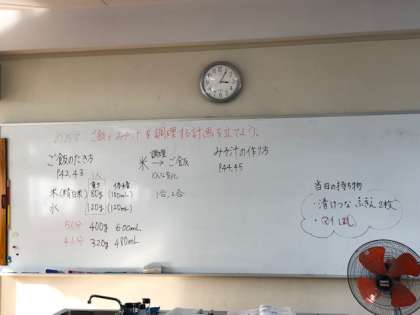 ご飯とみそ汁を調理する計画を立てよう。
ご飯のたき方
P42,43
1人
重さ 体積
米(精白米) 80g (100mL)
水 120g (120mL)
5人分 400g 600mL
4人分 320g 480mL
調理
米 → ご飯
1合、2合
みそ汁の作り方
P44,45
当日の持ち物
・清けつな ふきん 2枚
・マイ